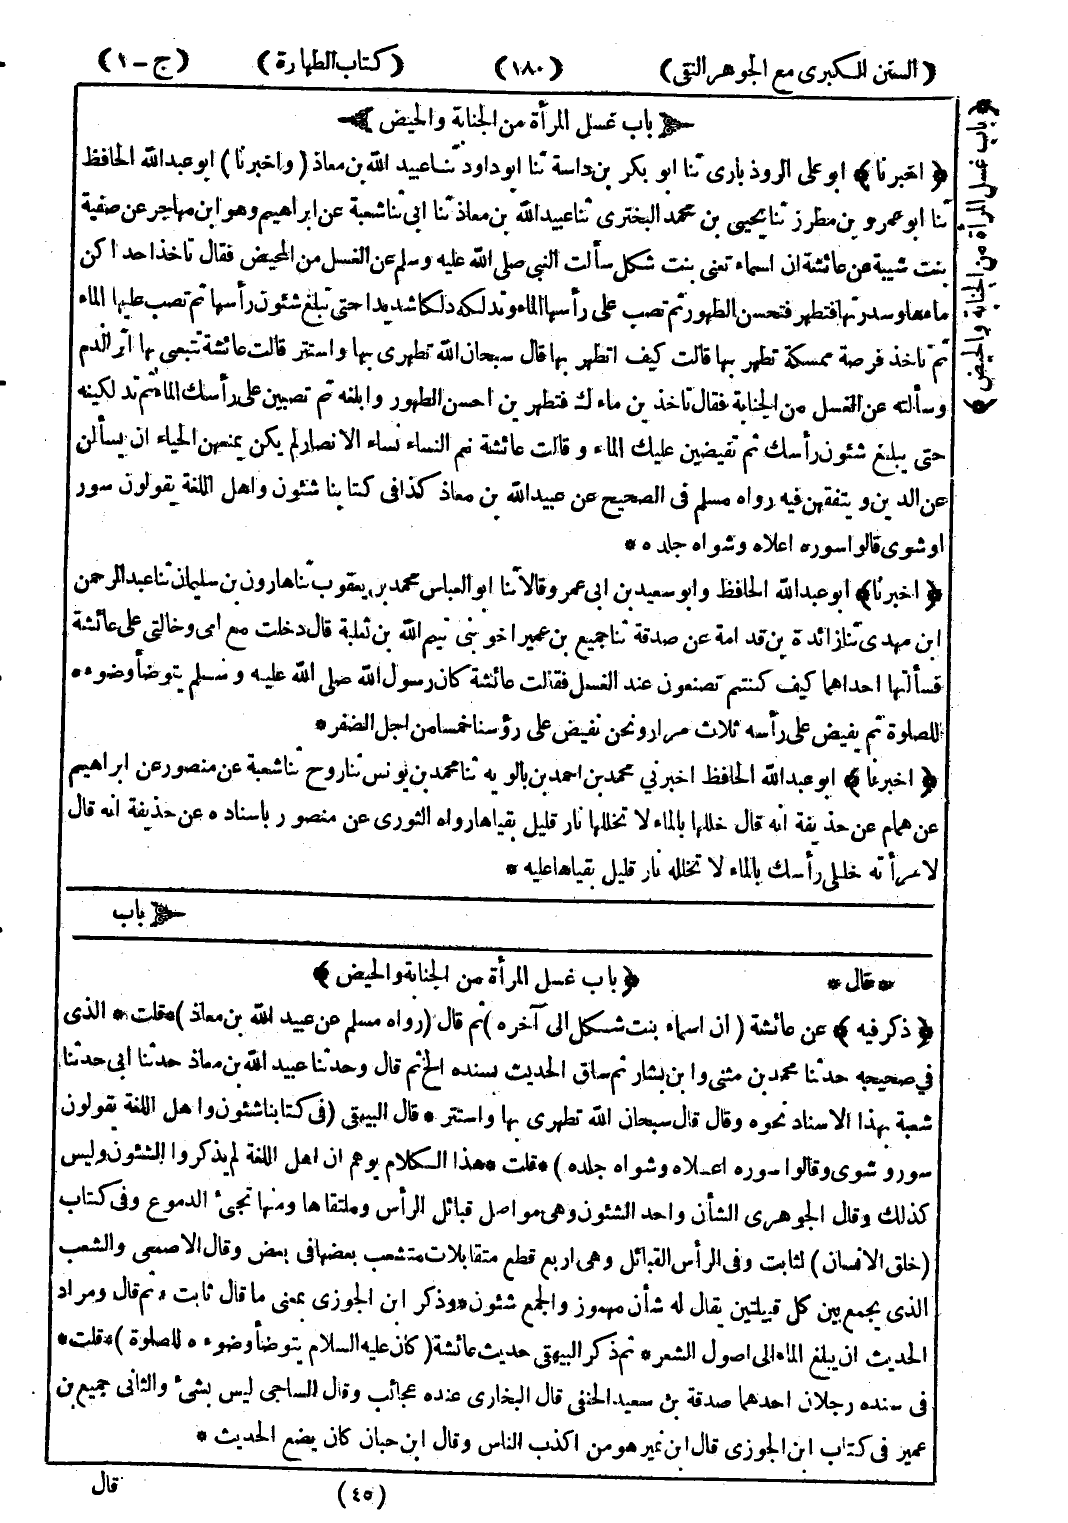 (السنن الكبرى مع الجوهر النقى) (١٨٠) (كتاب الطهارة) (ج-١)
باب غسل المرأة من الجنابة والحيض
﴿اخبرنا﴾ ابو على الروذبارى ثنا ابو بكر بن داسة ثنا ابو داود ثنا عبيد الله بن معاذ (واخبرنا) ابو عبد الله الحافظ
ثنا ابو عمرو بن مطرز ثنا يحيى بن محمد البخترى ثنا عبيد الله بن معاذ ثنا ابى ثنا شعبة عن ابراهيم وهو ابن مهاجر عن صفية
بنت شيبة عن عائشة ان اسماء تعنى بنت شكل سألت النبى صلى الله عليه وسلم عن الغسل من المحيض فقال تأخذ احد اكن
ماءها وسدرتها فتطهر فتحسن الطهور ثم تصب على رأسها الماء وتدلكه دلكا شديدا حتى تبلغ شئون رأسها ثم تصب عليها الماء
ثم تاخذ فرصة ممسكة تطهر بها قالت كيف اتطهر بها قال سبحان الله تطهرى بها واستتر قالت عائشة تتبعى بها اثر الدم
وسألته عن الغسل من الجنابة فقال تاخذ بن ماءك فتطهر بن احسن الطهور وابلغه ثم تصبين على رأسك الماء ثم تد لكينه
حتى يبلغ شئون رأسك ثم تفيضين عليك الماء وقالت عائشة نعم النساء نساء الانصار لم يكن يمنعهن الحياء ان يسألن
عن الدين ويتفقهن فيه رواه مسلم فى الصحيح عن عبيد الله بن معاذ كذا فى كتابنا شئون واهل اللغة يقولون سور
او شوى قالوا سوره اعلاه وشواه جلده *
﴿اخبرنا﴾ ابو عبد الله الحافظ وابو سعيد بن ابى عمرو قالا ثنا ابو العباس محمد بن يعقوب ثنا هارون بن سليمان ثنا عبد الرحمن
ابن مهدى ثنا زائدة بن قدامة عن صدقة ثنا جميع بن عمير اخو بنى تيم الله بن ثعلبة قال دخلت مع امى وخالتى على عائشة
فسألتها احداهما كيف كنتم تصنعون عند الغسل فقالت عائشة كان رسول الله صلى الله عليه وسلم يتوضأ وضوءه
للصلوة ثم يفيض على رأسه ثلاث مرار ونحن نفيض على رؤسنا خمسا من اجل الضفر *
﴿اخبرنا﴾ ابو عبد الله الحافظ اخبرني محمد بن احمد بن بالويه ثنا محمد بن يونس ثنا روح ثنا شعبة عن منصور عن ابراهيم
عن همام عن حذيفة انه قال خللها بالماء لا تخللها نار قليل بقياها رواه الثورى عن منصور باسناده عن حذيفة انه قال
لامرأته خللى رأسك بالماء لا تخلله نار قليل بقياها عليه *
باب
* قال * ﴿باب غسل المرأة من الجنابة والحيض﴾
﴿ذكر فيه﴾ عن عائشة (ان اسماء بنت شكل الى آخره) ثم قال (رواه مسلم عن عبيد الله بن معاذ) *قلت* الذى
في صحيحه حدثنا محمد بن مثنى وابن بشار ثم ساق الحديث بسنده الخ ثم قال وحدثنا عبيد الله بن معاذ حدثنا ابى حدثنا
شعبة بهذا الاسناد نحوه وقال قال سبحان الله تطهرى بها واستتر * قال البيهقى (فى كتابنا شئون واهل اللغة يقولون
سور و شوى وقالوا سوره اعلاه وشواه جلده) *قلت* هذا الكلام يوهم ان اهل اللغة لم يذكروا الشئون وليس
كذلك وقال الجوهرى الشأن واحد الشئون وهى مواصل قبائل الرأس وملتقاها ومنها تجىء الدموع وفى كتاب
(خلق الانسان) لثابت وفى الرأس القبائل وهى اربع قطع متقابلات متشعب بعضها فى بعض وقال الاصمعى والشعب
الذى يجمع بين كل قبيلتين يقال له شأن مهموز والجمع شئون وذكر ابن الجوزى بمعنى ما قال ثابت ثم قال ومراد
الحديث ان يبلغ الماء الى اصول الشعر * ثم ذكر البيهقى حديث عائشة (كان عليه السلام يتوضأ وضوءه للصلوة) *قلت*
فى سنده رجلان احدهما صدقة بن سعيد الحنفى قال البخارى عنده عجائب وقال الساجى ليس بشىء والثانى جميع بن
عمير فى كتاب ابن الجوزى قال ابن نمير هو من اكذب الناس وقال ابن حبان كان يضع الحديث *
قال
(٤٥)
﴿باب غسل المرأة من الجنابة والحيض﴾